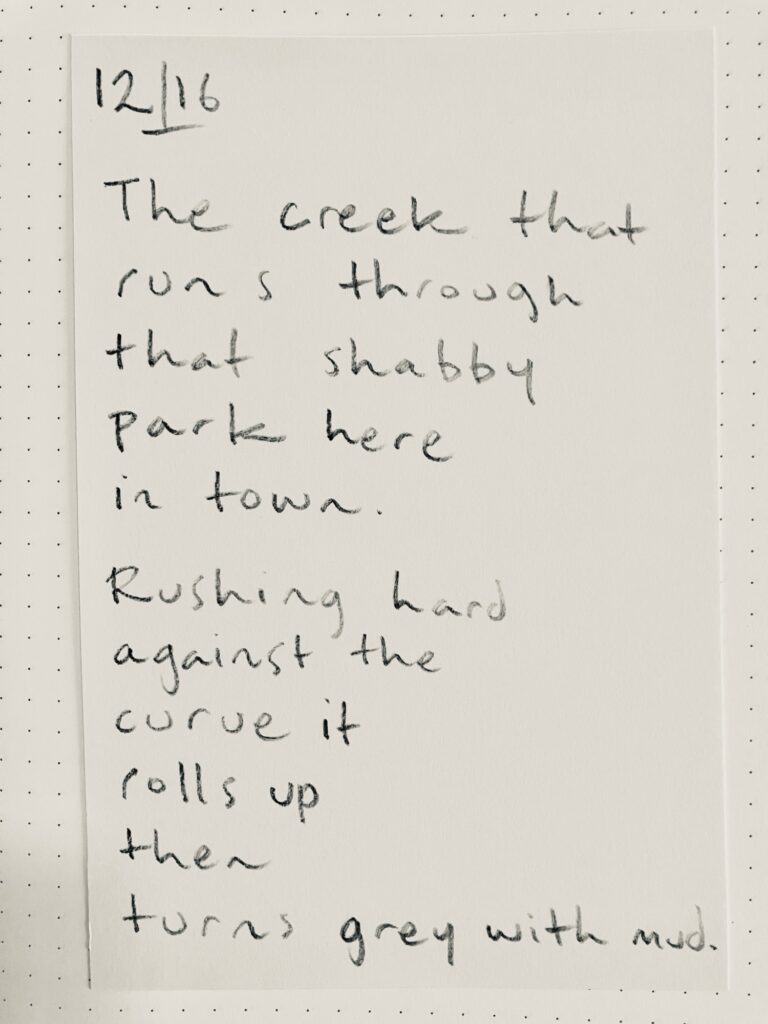 12/16
The creek that
runs through
that shabby
park here
in town.
Rushing hard
against the
curve it
rolls up
then
turns grey with mud.